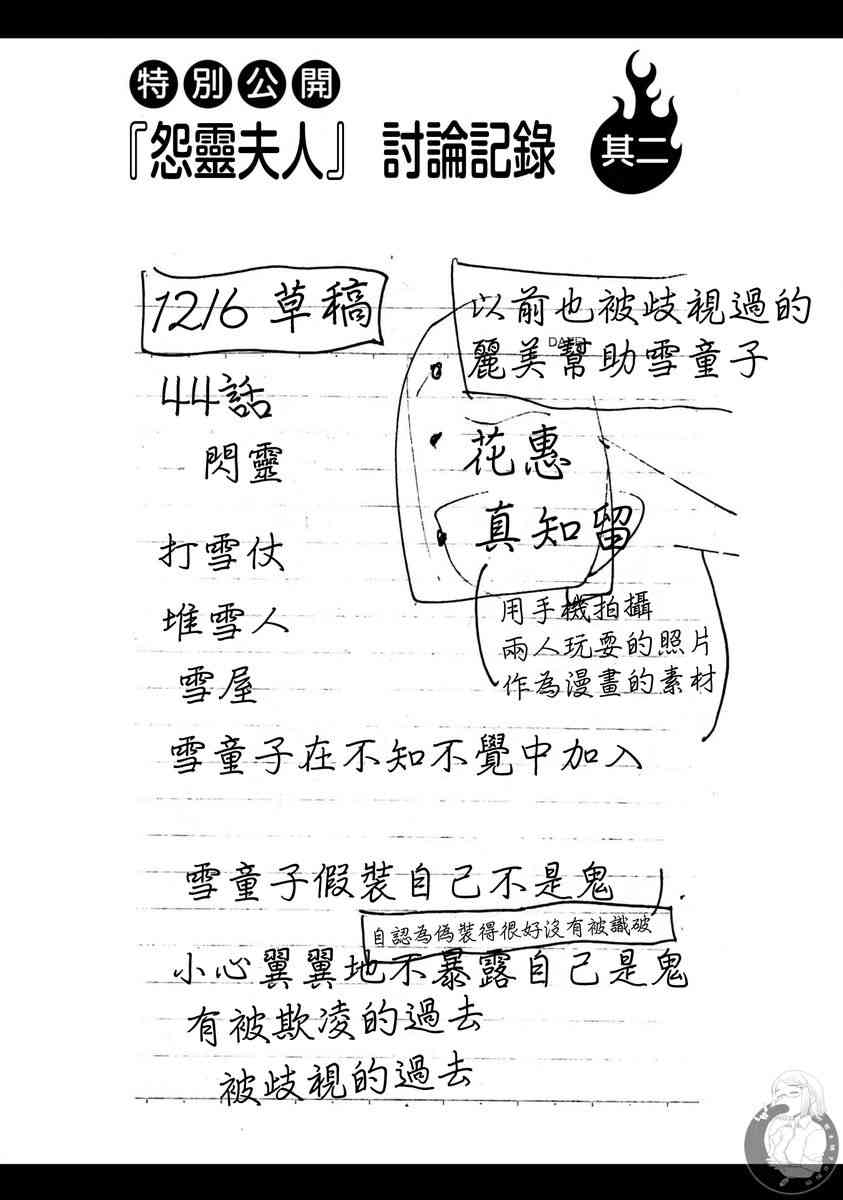 特別公開
『怨靈夫人』 討論記錄
其二
12/6 草稿
44話
閃靈
打雪仗
堆雪人
雪屋
雪童子在不知不覺中加入
以前也被歧視過的
麗美幫助雪童子
花惠
真知留
用手機拍攝
兩人玩耍的照片
作為漫畫的素材
雪童子假裝自己不是鬼
自認為偽裝得很好沒有被識破
小心翼翼地不暴露自己是鬼
有被欺凌的過去
被歧視的過去